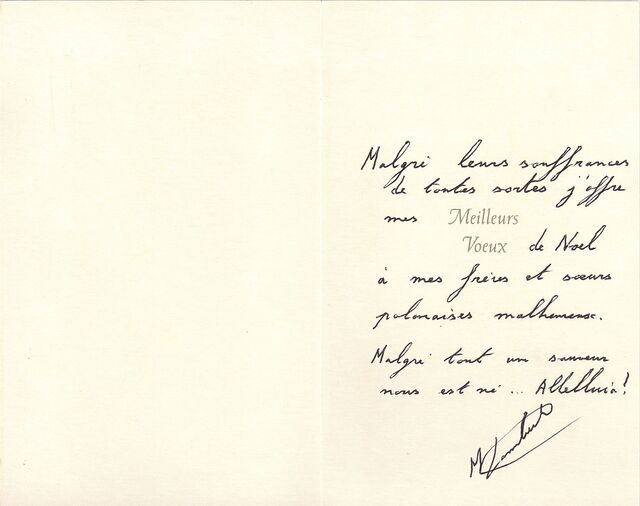 Malgré leurs souffrances
de toutes sortes j'offre
mes Meilleurs
Voeux de Noel
à mes frères et sœurs
polonaises malheureux.
Malgré tout un sauveur
nous est né ... Allelluia!
M Lambert